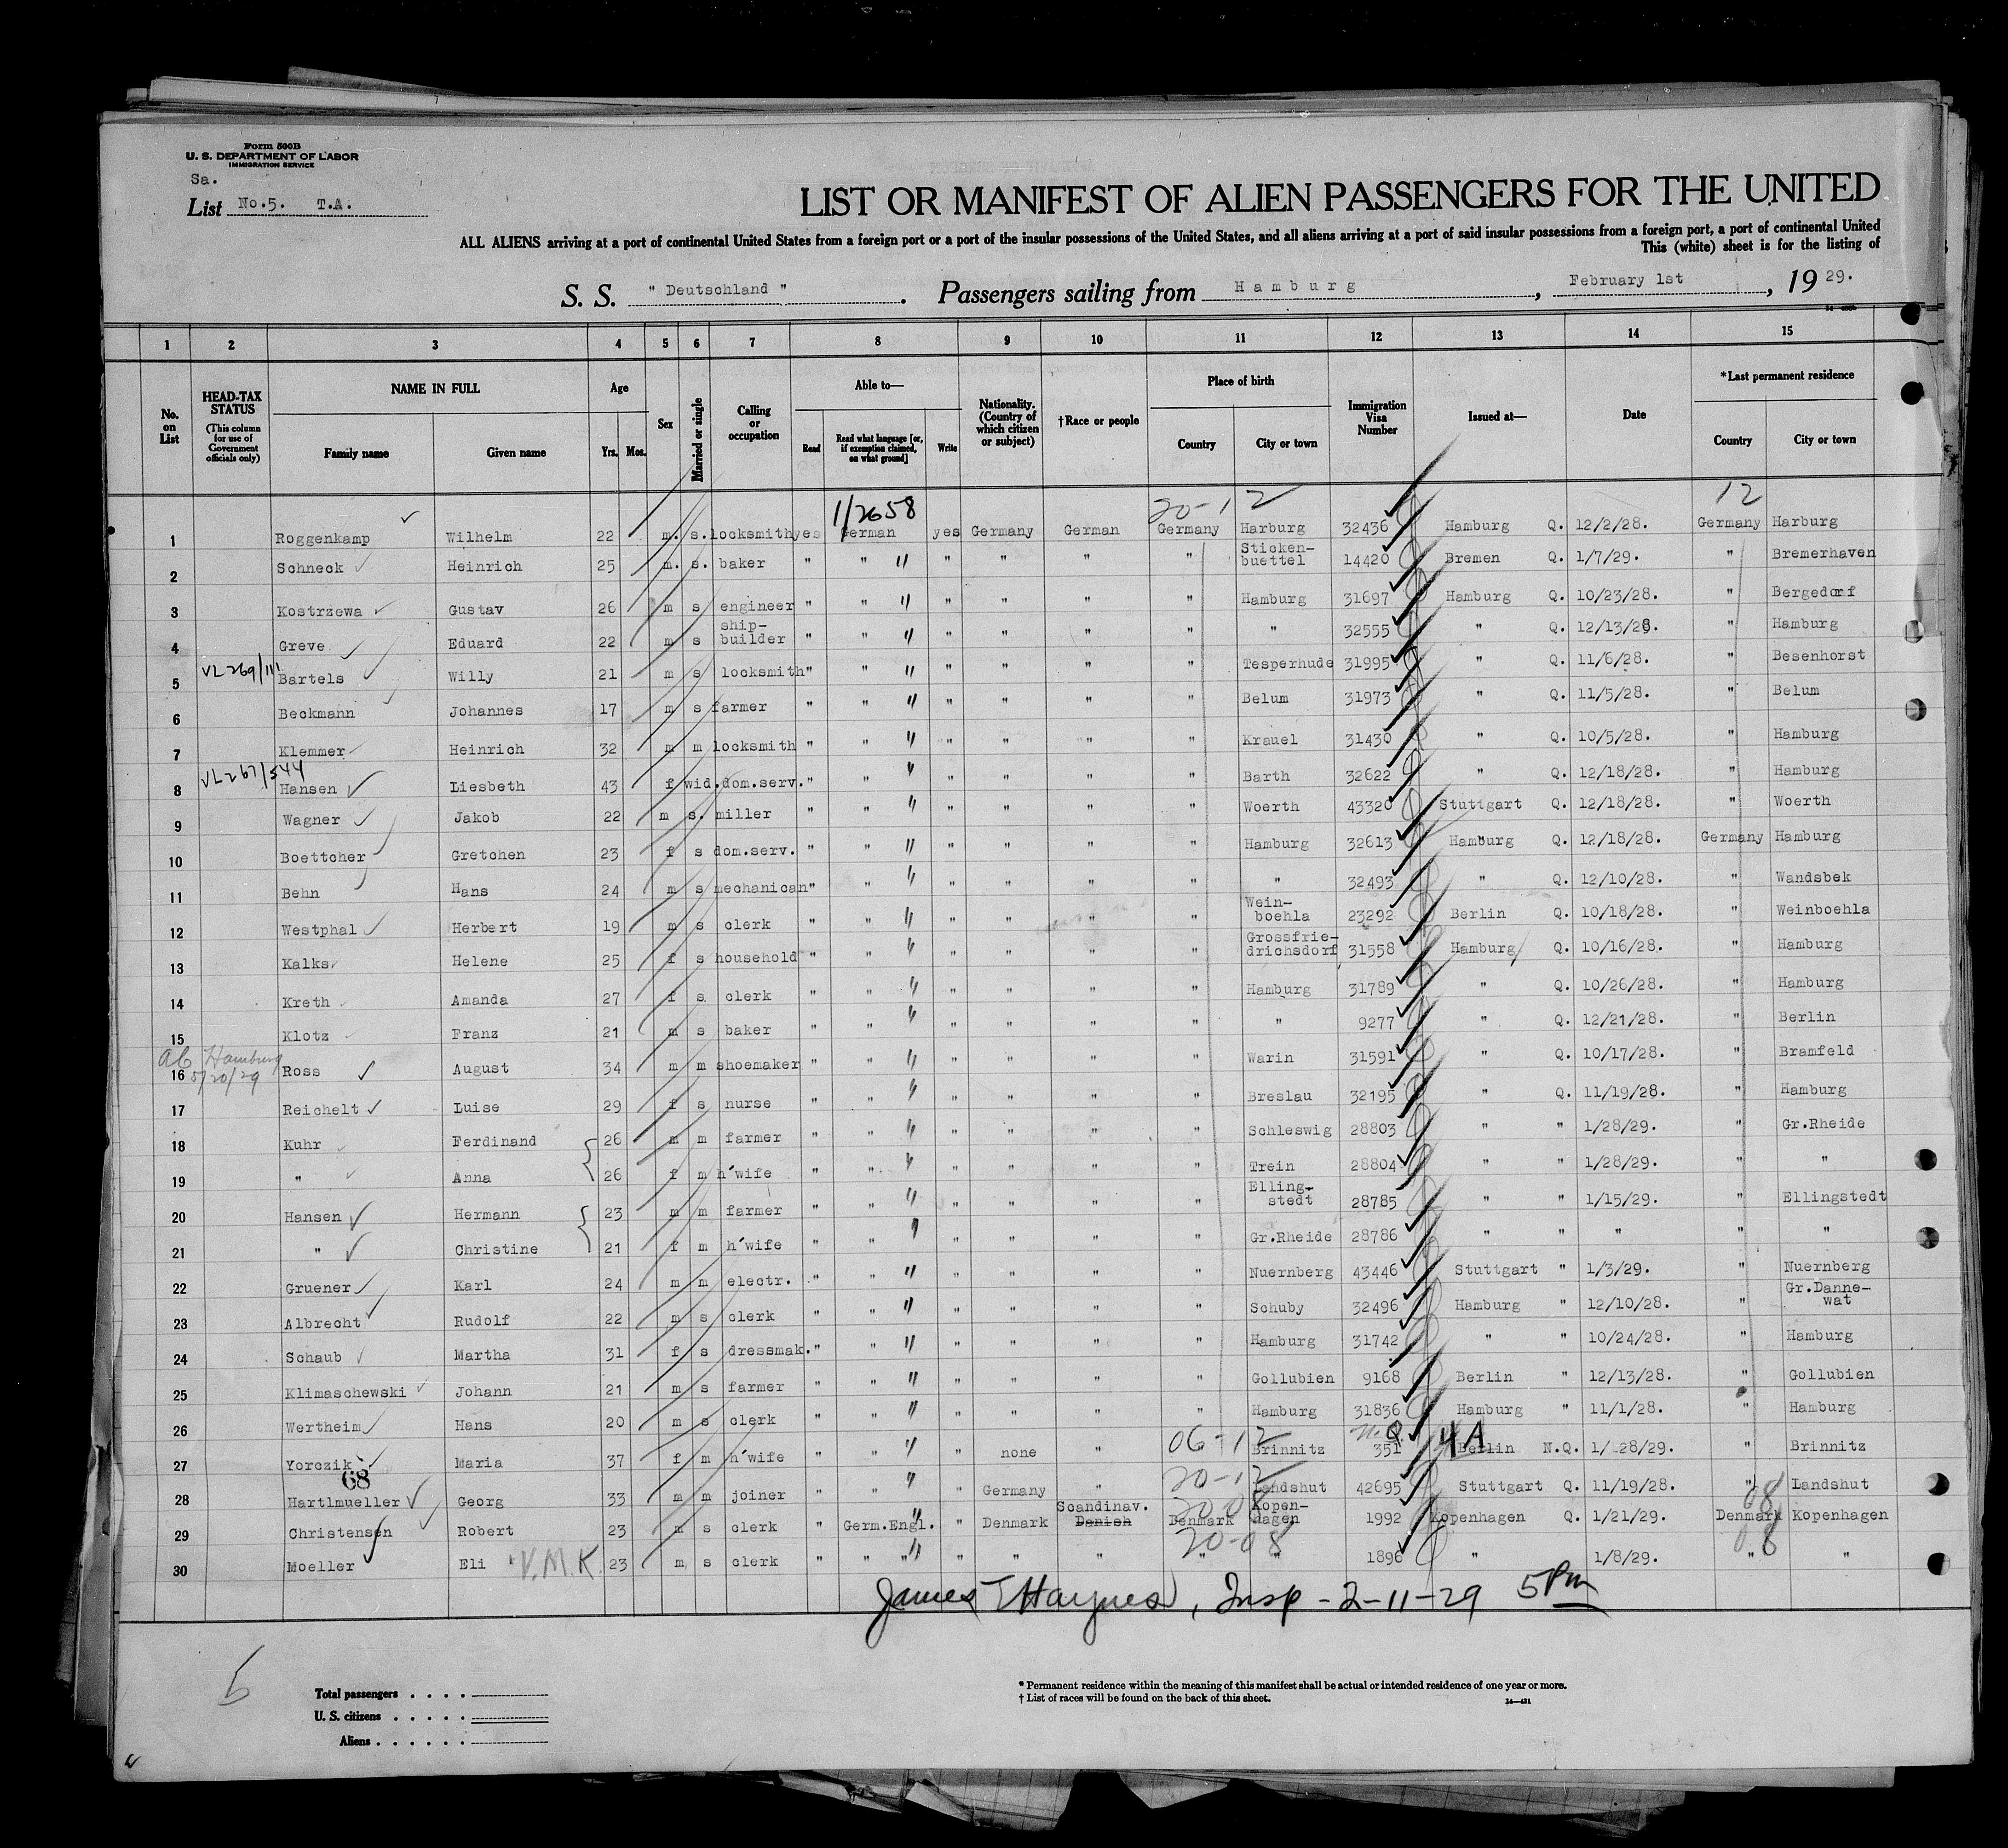 Form 500B
U. S. DEPARTMENT OF LABOR
IMMIGRATION SERVICE
Sa.
List No.5. T.A.
LIST OR MANIFEST OF ALIEN PASSENGERS FOR THE UNITED
ALL ALIENS arriving at a port of continental United States from a foreign port or a port of the insular possessions of the United States, and all aliens arriving at a port of said insular possessions from a foreign port, a port of continental United
This (white) sheet is for the listing of
S. S. " Deutschland " . Passengers sailing from Hamburg , February 1st , 19 29.
1 2 3 4 5 6 7 8 9 10 11 12 13 14 15
No. on List
HEAD-TAX STATUS (This column for use of Government officials only)
NAME IN FULL Family name Given name
Age Yrs. Mos.
Sex
Married or single
Calling or occupation
Able to— Read Read what language [or, if exemption claimed, on what ground] Write
Nationality. (Country of which citizen or subject)
†Race or people
Place of birth Country City or town
Immigration Visa Number
Issued at—
Date
*Last permanent residence Country City or town
1/2658 20-12 12
1 Roggenkamp Wilhelm 22 m. s. locksmith yes German yes Germany German Germany Harburg 32436 Hamburg Q. 12/2/28. Germany Harburg
2 Schneck Heinrich 25 m. s. baker " " " " " " " Sticken-buettel 14420 Bremen Q. 1/7/29. " Bremerhaven
3 Kostrzewa Gustav 26 m s engineer " " " " " " " Hamburg 31697 Hamburg Q. 10/23/28. " Bergedorf
4 Greve Eduard 22 m s ship-builder " " " " " " " " 32555 " Q. 12/13/28. " Hamburg
VL 269/111
5 Bartels Willy 21 m s locksmith " " " " " " " Tesperhude 31995 " Q. 11/6/28. " Besenhorst
6 Beckmann Johannes 17 m s farmer " " " " " " " Belum 31973 " Q. 11/5/28. " Belum
7 Klemmer Heinrich 32 m m locksmith " " " " " " " Krauel 31430 " Q. 10/5/28. " Hamburg
VL 267/544
8 Hansen Liesbeth 43 f wid. dom.serv. " " " " " " " Barth 32622 " Q. 12/18/28. " Hamburg
9 Wagner Jakob 22 m s. miller " " " " " " " Woerth 43320 Stuttgart Q. 12/18/28. " Woerth
10 Boettcher Gretchen 23 f s dom.serv. " " " " " " " Hamburg 32613 Hamburg Q. 12/18/28. Germany Hamburg
11 Behn Hans 24 m s mechanican " " " " " " " " 32493 " Q. 12/10/28. " Wandsbek
12 Westphal Herbert 19 m s clerk " " " " " " " Wein-boehla 23292 Berlin Q. 10/18/28. " Weinboehla
13 Kalks Helene 25 f s household " " " " " " " Grossfrie-drichsdorf 31558 Hamburg Q. 10/16/28. " Hamburg
14 Kreth Amanda 27 f s clerk " " " " " " " Hamburg 31789 " Q. 10/26/28. " Hamburg
15 Klotz Franz 21 m s baker " " " " " " " " 9277 " Q. 12/21/28. " Berlin
Hamburg 5/20/29
16 Ross August 34 m m shoemaker " " " " " " " Warin 31591 " Q. 10/17/28. " Bramfeld
17 Reichelt Luise 29 f s nurse " " " " " " " Breslau 32195 " Q. 11/19/28. " Hamburg
18 Kuhr Ferdinand 26 m m farmer " " " " " " " Schleswig 28803 " " 1/28/29. " Gr.Rheide
19 " Anna 26 f m h'wife " " " " " " " Trein 28804 " " 1/28/29. " "
20 Hansen Hermann 23 m m farmer " " " " " " " Elling-stedt 28785 " " 1/15/29. " Ellingstedt
21 " Christine 21 f m h'wife " " " " " " " Gr.Rheide 28786 " " " " "
22 Gruener Karl 24 m m electr. " " " " " " " Nuernberg 43446 Stuttgart " 1/3/29. " Nuernberg
23 Albrecht Rudolf 22 m s clerk " " " " " " " Schuby 32496 Hamburg " 12/10/28. " Gr.Danne-wat
24 Schaub Martha 31 f s dressmak. " " " " " " " Hamburg 31742 " " 10/24/28. " Hamburg
25 Klimaschewski Johann 21 m s farmer " " " " " " " Gollubien 9168 Berlin " 12/13/28. " Gollubien
26 Wertheim Hans 20 m s clerk " " " " " " " Hamburg 31836 Hamburg " 11/1/28. " Hamburg
06-12 N.Q. 4A
27 Yorczik Maria 37 f m h'wife " " " " none " Brinnitz 351 Berlin N.Q. 1/28/29. " Brinnitz
68 20-12
28 Hartlmueller Georg 33 m m joiner " " " " Germany " Landshut 42695 Stuttgart Q. 11/19/28. " Landshut
20-08 08
29 Christensen Robert 23 m s clerk " Germ.Engl. " Denmark Scandinav. Danish Denmark Kopen-hagen 1992 Kopenhagen Q. 1/21/29. Denmark Kopenhagen
20-08 08
30 Moeller Eli V.M.K. 23 m s clerk " " " " " " " " 1896 " 1/8/29. " "
James T Haynes, Insp - 2-11-29 5 Pm
5
Total passengers . . . .
U. S. citizens . . . . .
Aliens . . . . . .
* Permanent residence within the meaning of this manifest shall be actual or intended residence of one year or more.
† List of races will be found on the back of this sheet.
14—431